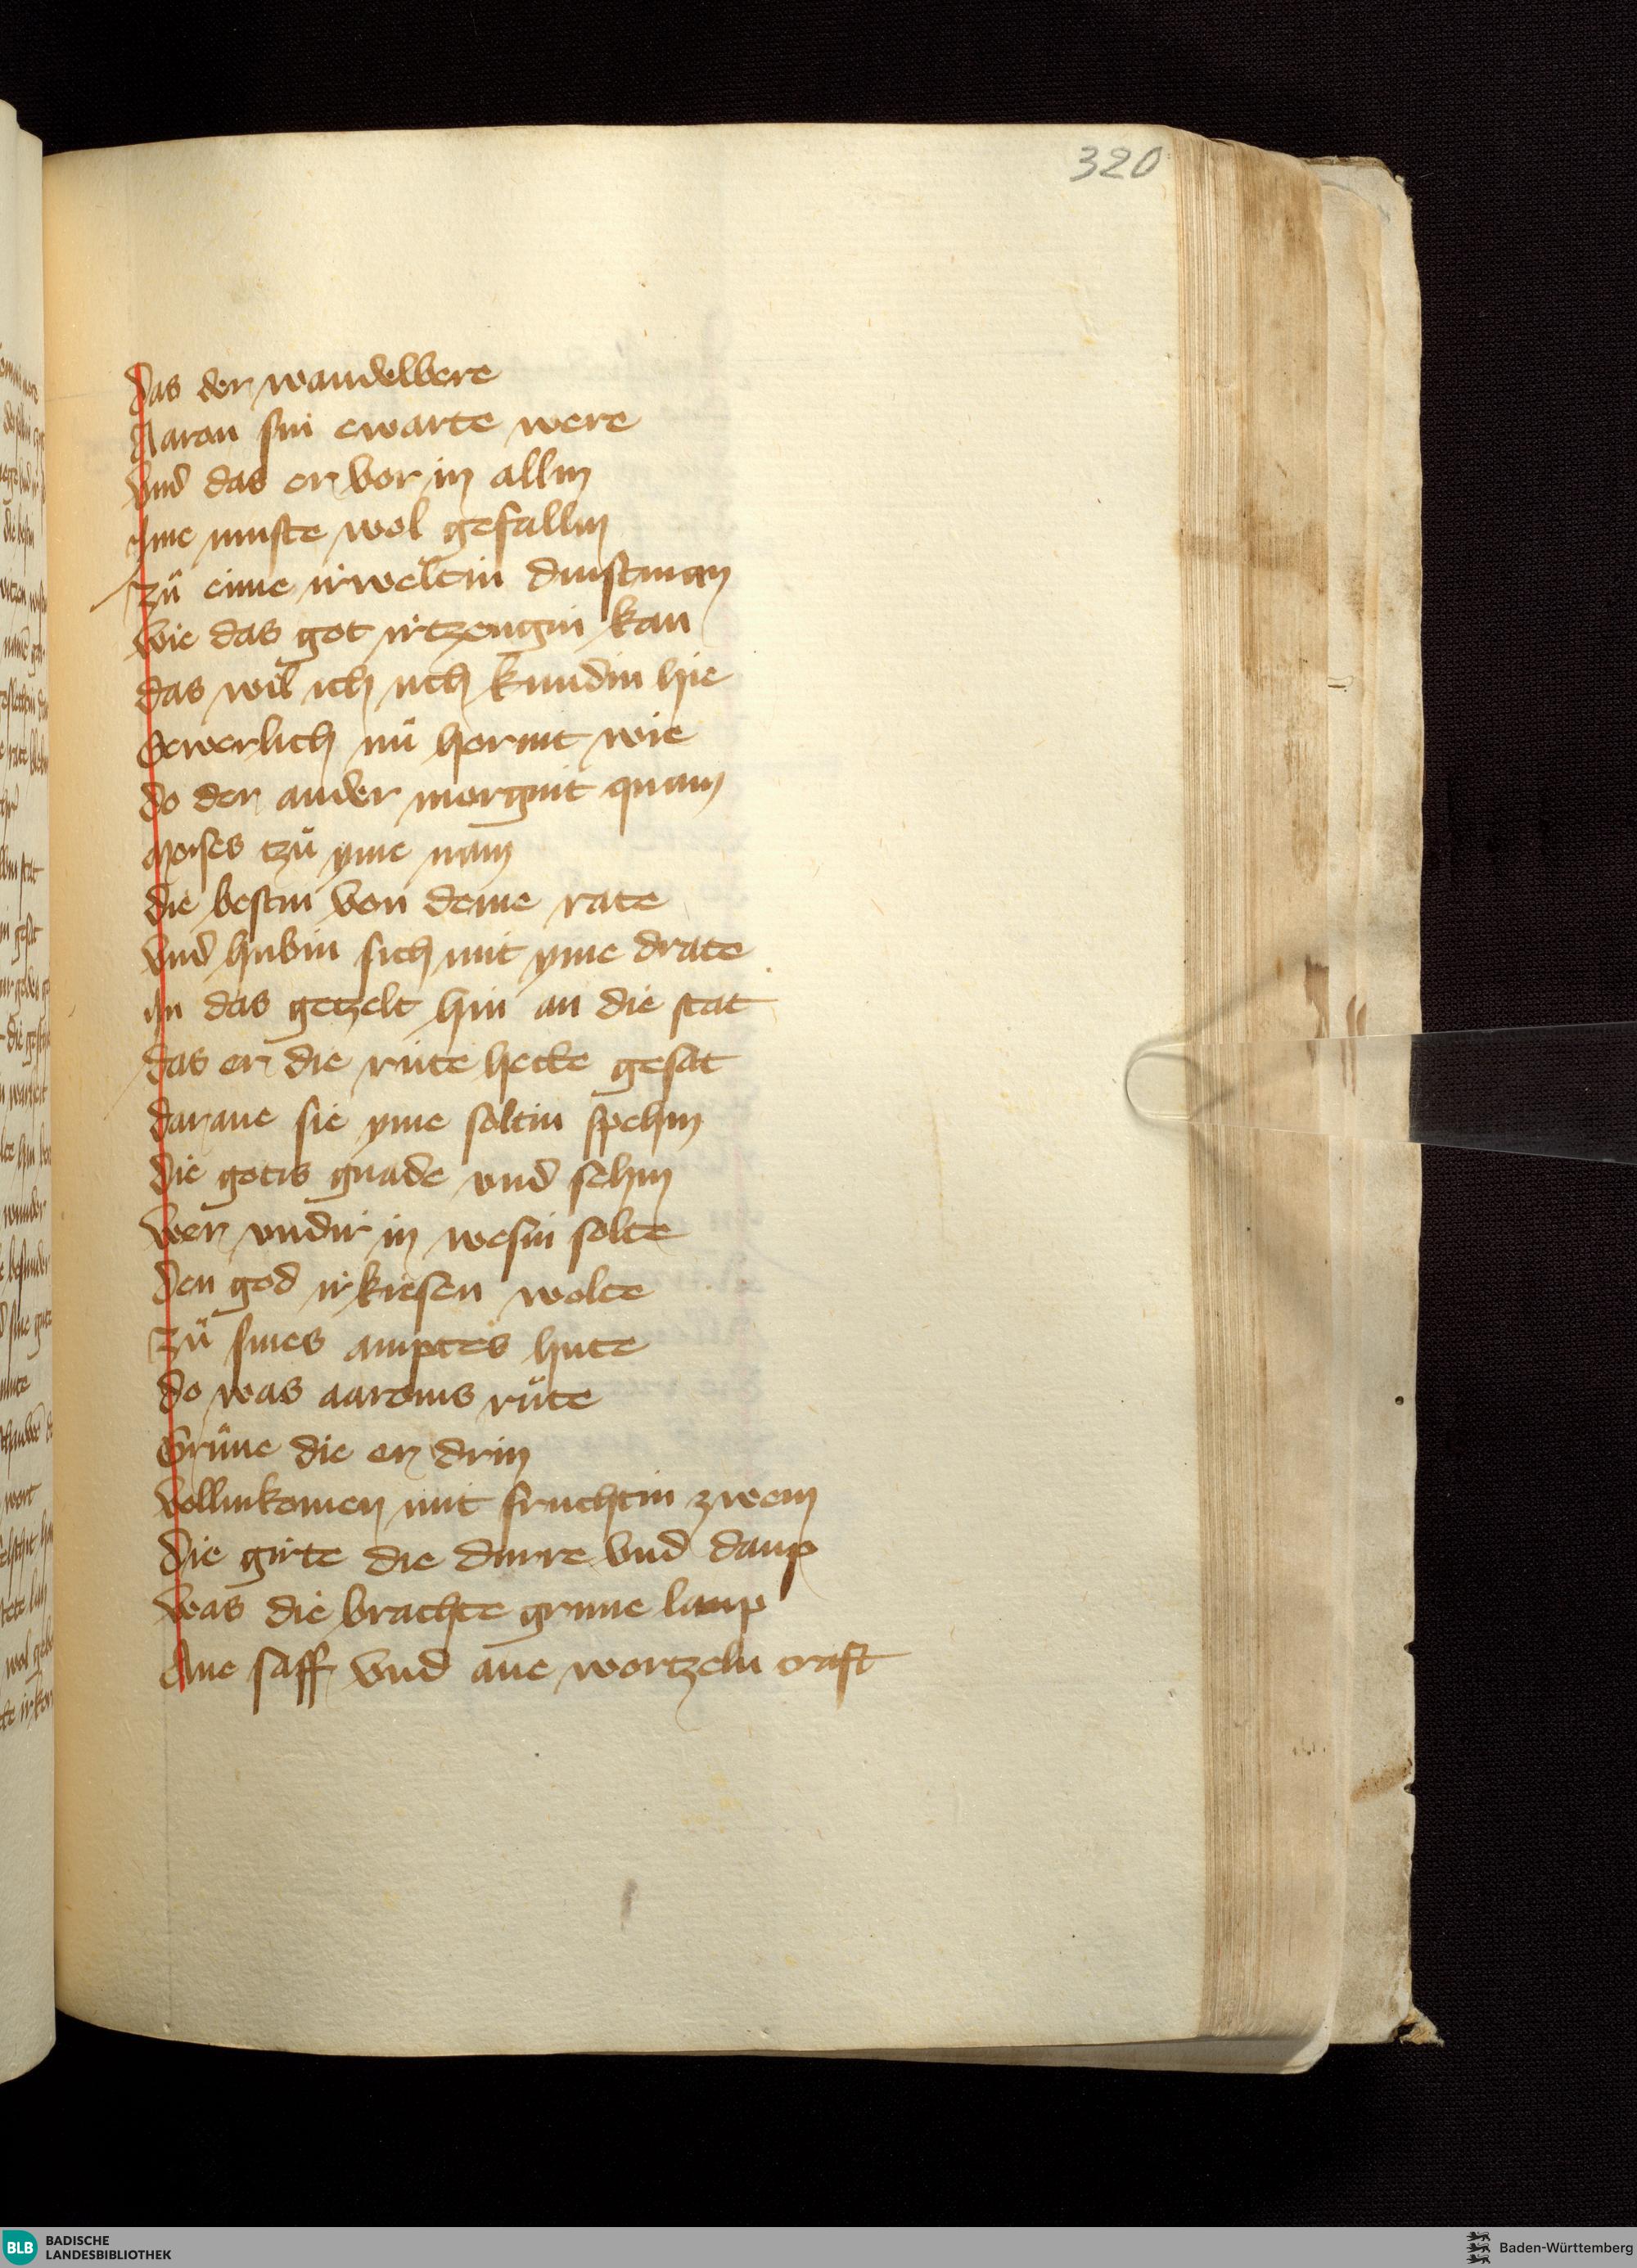 320
Das der wandelbere
Aaron sin ewarte were
Vnd das er vor in allin
Ime muste wol gefallin
Zů eime irweltin dinstman
Wie das got irtzeugin kan
Das wil ich uch kundin hie
Gewerlich nů horint wie
Do der ander morgint quam
Moises tzů yme nam
Die bestin von deme rate
Vnd hubin sich mit yme drate
In das getzelt hin an die stat
Das er die růte hette gesat
Darane sie yme soltin spehin
Die gotis gnade vnd sehin
Wer vndir in wesin solte
Den god irkiesen wolte
Zů sines amptes hute
Do was aaronis růte
Grůne die er drin
Vollinkomen mit fruchtin zwein
Die girte die durre vnd daup
Was die brachte grune laup
Ane saff vnd ane wortzeln craft
BLB BADISCHE
LANDESBIBLIOTHEK
Baden-Württemberg